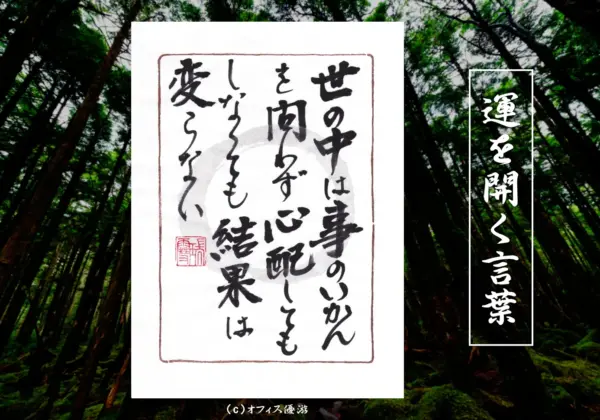 運を開く言葉
世の中は事のいかん
を問わず心配しても
しなくても結果は
変らない
(c)オフィス優游